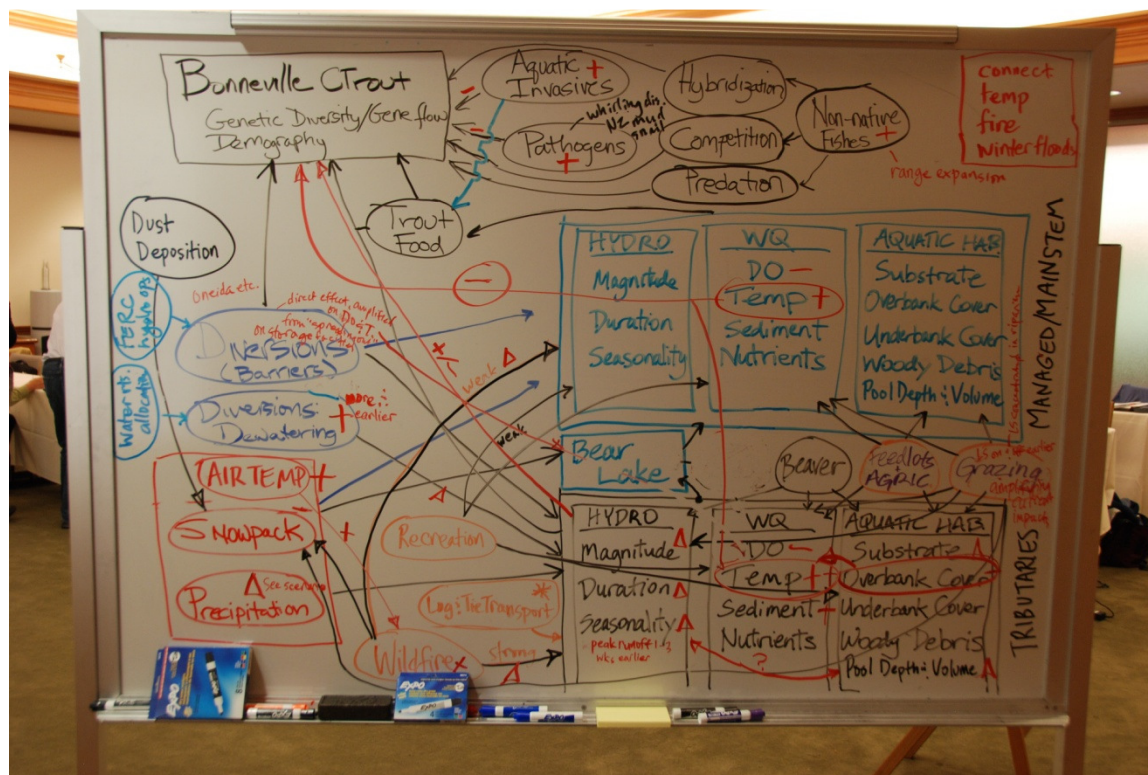 Bonneville CTrout
Genetic Diversity/Gene flow
Demography
Aquatic +
Invasives
Pathogens
+
whirling dis.
NZ mud
snail
Hybridization
Competition
Predation
Non-native
Fishes +
range expansion
connect
temp
fire
winter floods
Trout
Food
Dust
Deposition
FERC
hydro ops
Water rts.
allocation
Oneida etc.
direct effect, amplified
on DO & T,
Diversions
(Barriers)
Diversions:
Dewatering +
more :
earlier
AIR TEMP +
Snowpack
Δ See scenario
Precipitation
Recreation
Log & Tie Transport
*
Wildfire
strong
weak
weak
Δ
Δ
Δ
+
−
−
−
HYDRO
Magnitude
Duration
Seasonality
WQ
DO −
Temp +
Sediment
Nutrients
AQUATIC HAB
Substrate
Overbank Cover
Underbank Cover
Woody Debris
Pool Depth & Volume
MANAGED/MAINSTEM
Bear
Lake
Beaver
Feedlots
AGRIC
Grazing
amplifying
current
impact
HYDRO
Magnitude Δ
Duration Δ
Seasonality Δ
peak runoff 1-3
wks earlier
WQ
DO −
Temp ++
Sediment +
Nutrients
?
AQUATIC HAB
Substrate Δ
Overbank Cover
Underbank Cover
Woody Debris
Pool Depth & Volume Δ
TRIBUTARIES
EXPO
EXPO
EXPO